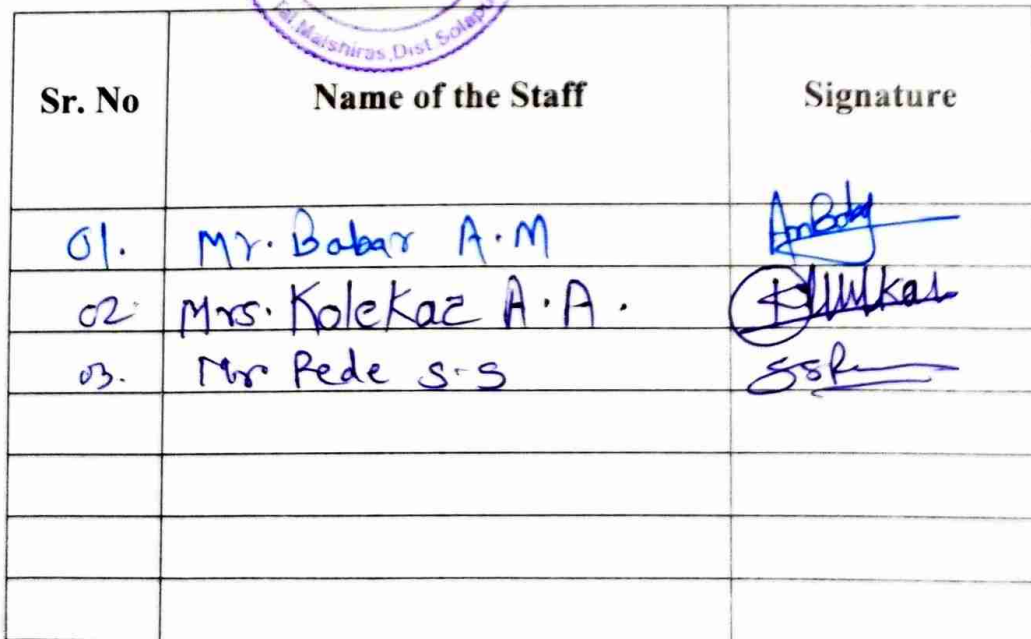 Tal.Malshiras,Dist Solapu
Sr. No Name of the Staff Signature
01. Mr. Babar A.M AmBabar
02. Mrs. Kolekar A.A.
03. Mr Pede S.S SSP